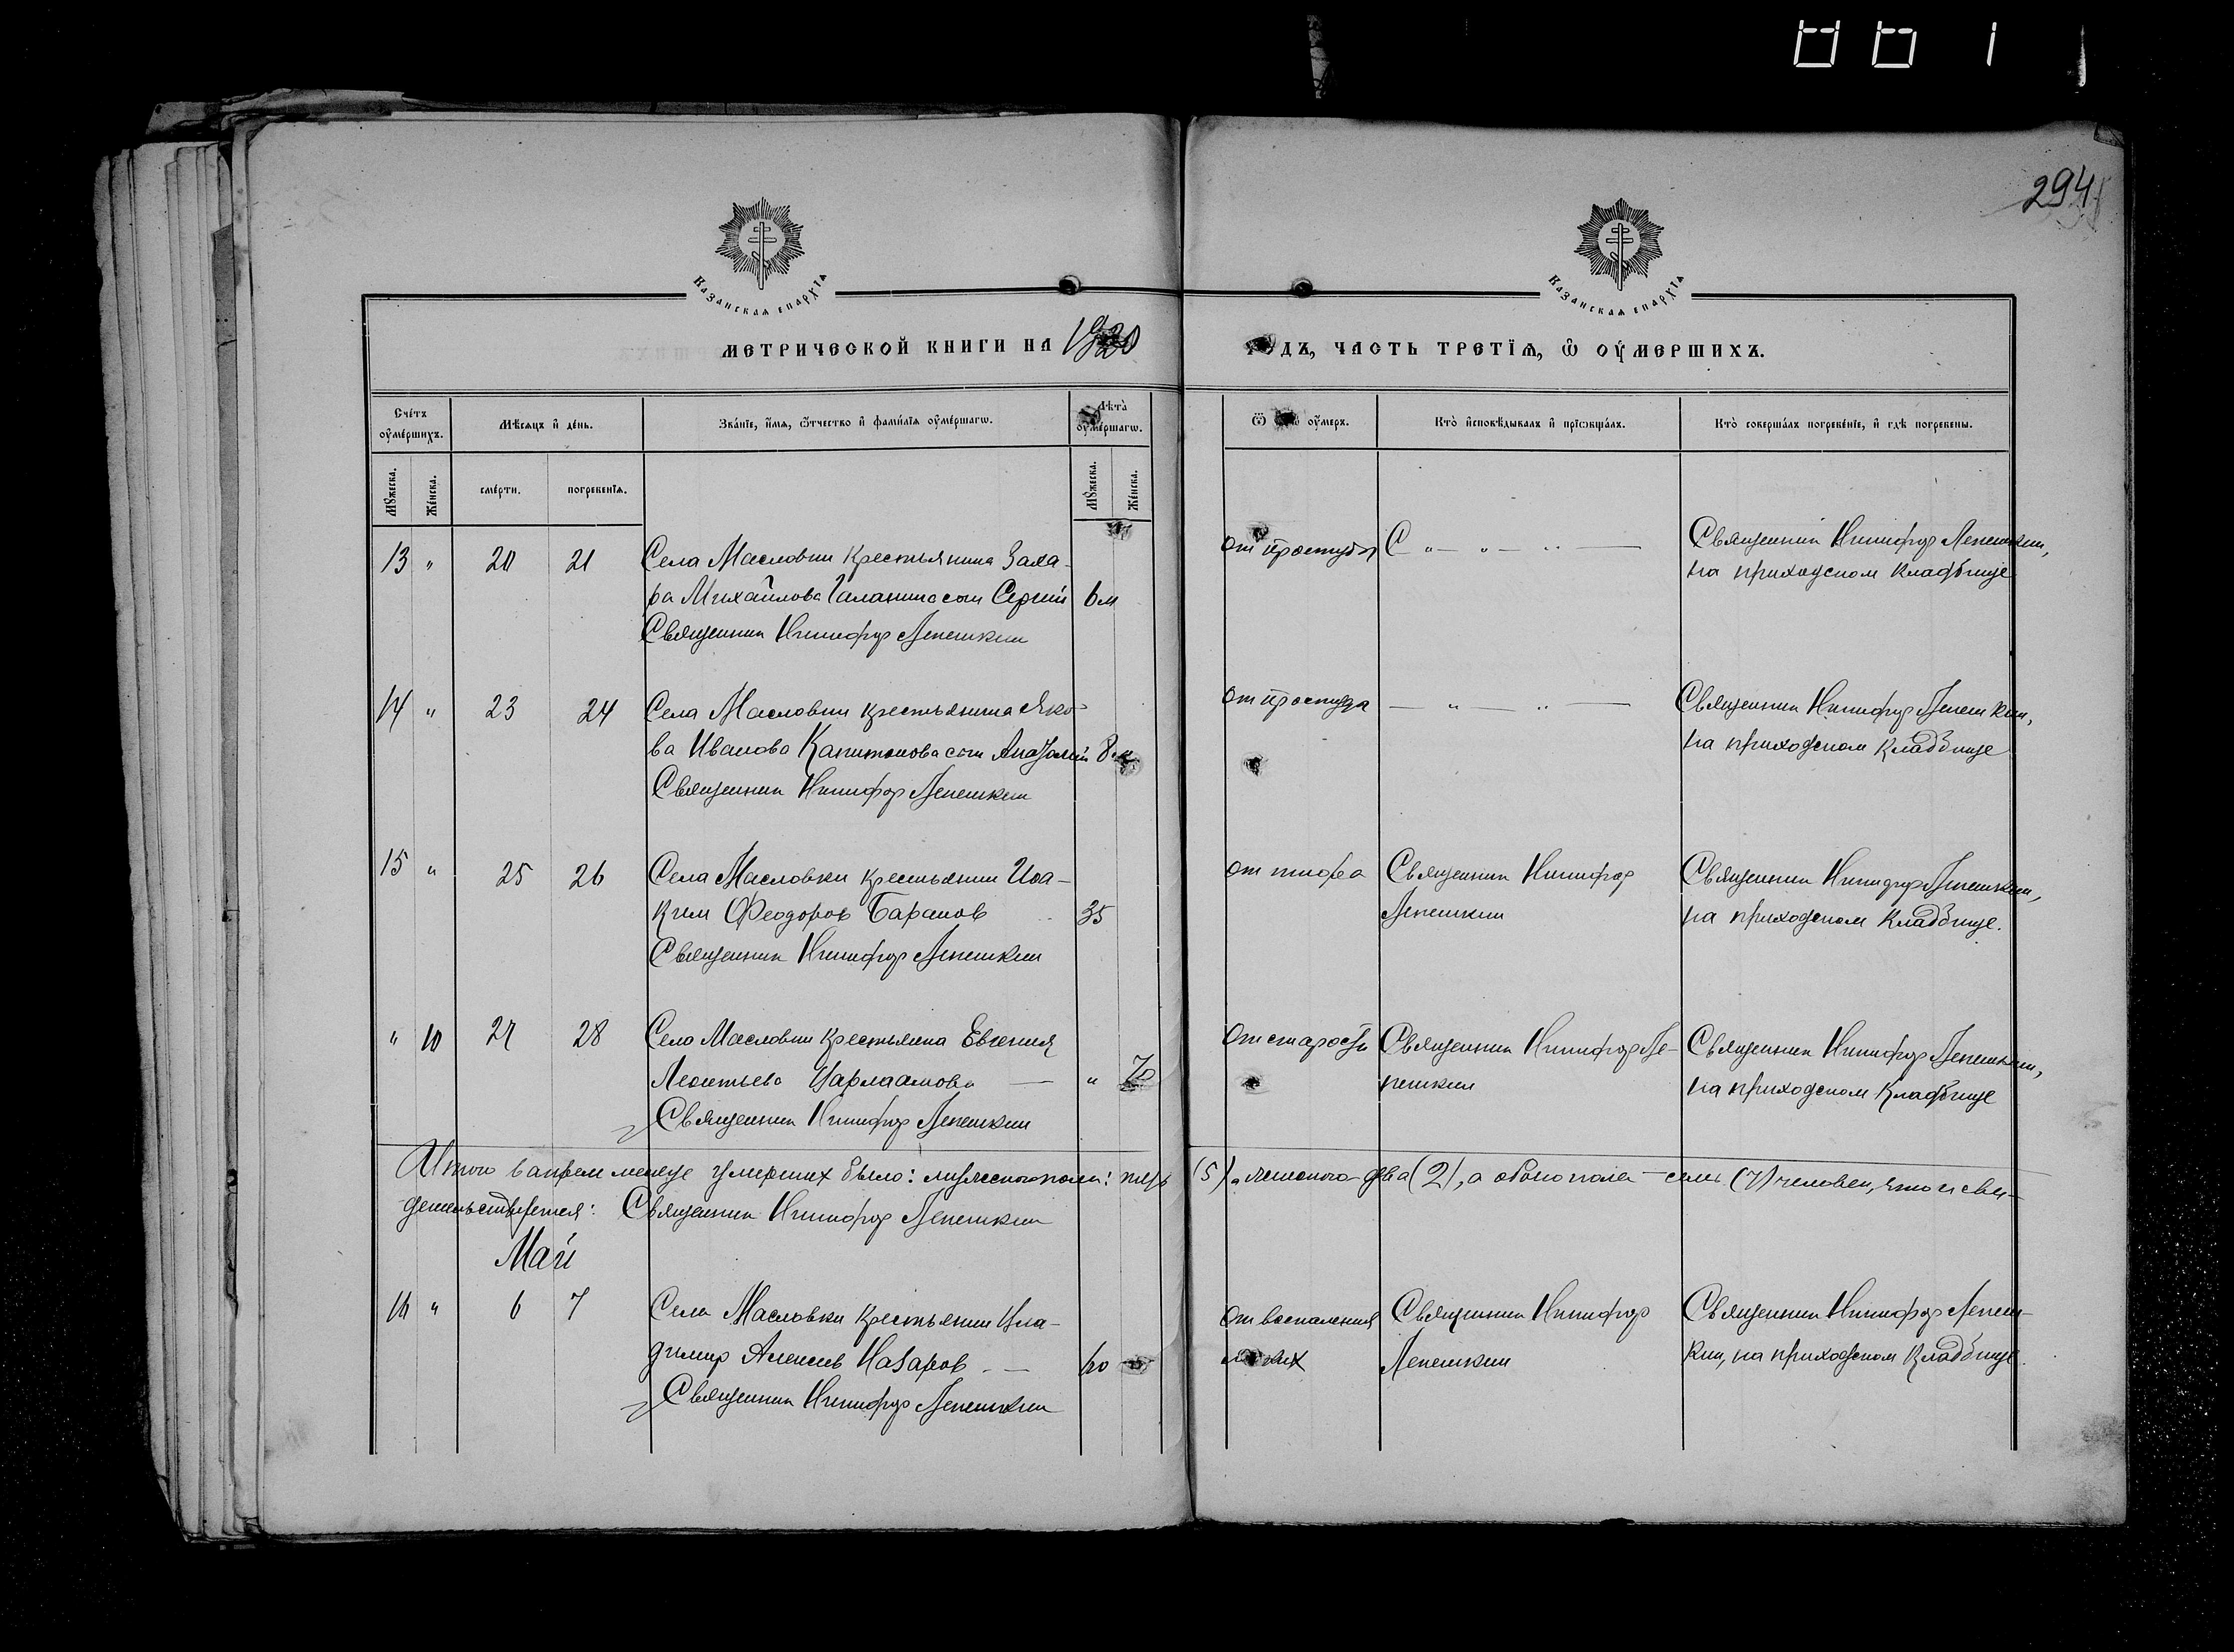 294
Казанская епархїѧ
Казанская епархїѧ
МЕТРИЧЕСКОЙ КНИГИ НА 1920
ГОДЪ, ЧАСТЬ ТРЕТЇѦ, Ѡ ОУМЕРШИХЪ.
Счетъ оумершихъ.
Мѣсяцъ и день.
Званїе, имя, ѿчество и фамилїя оумершагѡ.
Лѣта оумершагѡ.
Ѿ чегѡ оумеръ.
Кто исповѣдывалъ и прїѡбщалъ.
Кто совершалъ погребенїе, и гдѣ погребены.
Мꙋжеска.
Женска.
смерти.
погребенїя.
Мꙋжеска.
Женска.
13 " 20 21 Села Масловки крестьянина Заха-
ра Михайлова Галанина сын Сергий 6 м
Священник Никифор Лепешкин
от простуды
С " — " — " —
Священник Никифор Лепешкин,
на приходском кладбище
14 " 23 24 Села Масловки крестьянина Яко-
ва Иванова Капитонова сын Анатолий 8 м
Священник Никифор Лепешкин
от простуды
— " — " —
Священник Никифор Лепешкин,
на приходском кладбище
15 " 25 26 Села Масловки крестьянин Иоа-
ким Феодоров Баранов 35
Священник Никифор Лепешкин
от тифа
Священник Никифор
Лепешкин
Священник Никифор Лепешкин,
на приходском кладбище.
" 10 27 28 Села Масловки крестьянка Евгения
Леонтьева Варлаамова — " 70
Священник Никифор Лепешкин
От старости
Священник Никифор Ле-
пешкин
Священник Никифор Лепешкин,
на приходском кладбище
Итого в апреле месяце умерших было: мужеского пола: пять (5), женского — два (2), а обоего пола — семь (7) человек, что и сви-
детельствуется: Священник Никифор Лепешкин
Май
16 " 6 7 Села Масловки крестьянин Вла-
димир Алексеев Назаров — 60
Священник Никифор Лепешкин
от воспаления
легких
Священник Никифор
Лепешкин
Священник Никифор Лепеш-
кин, на приходском кладбище.